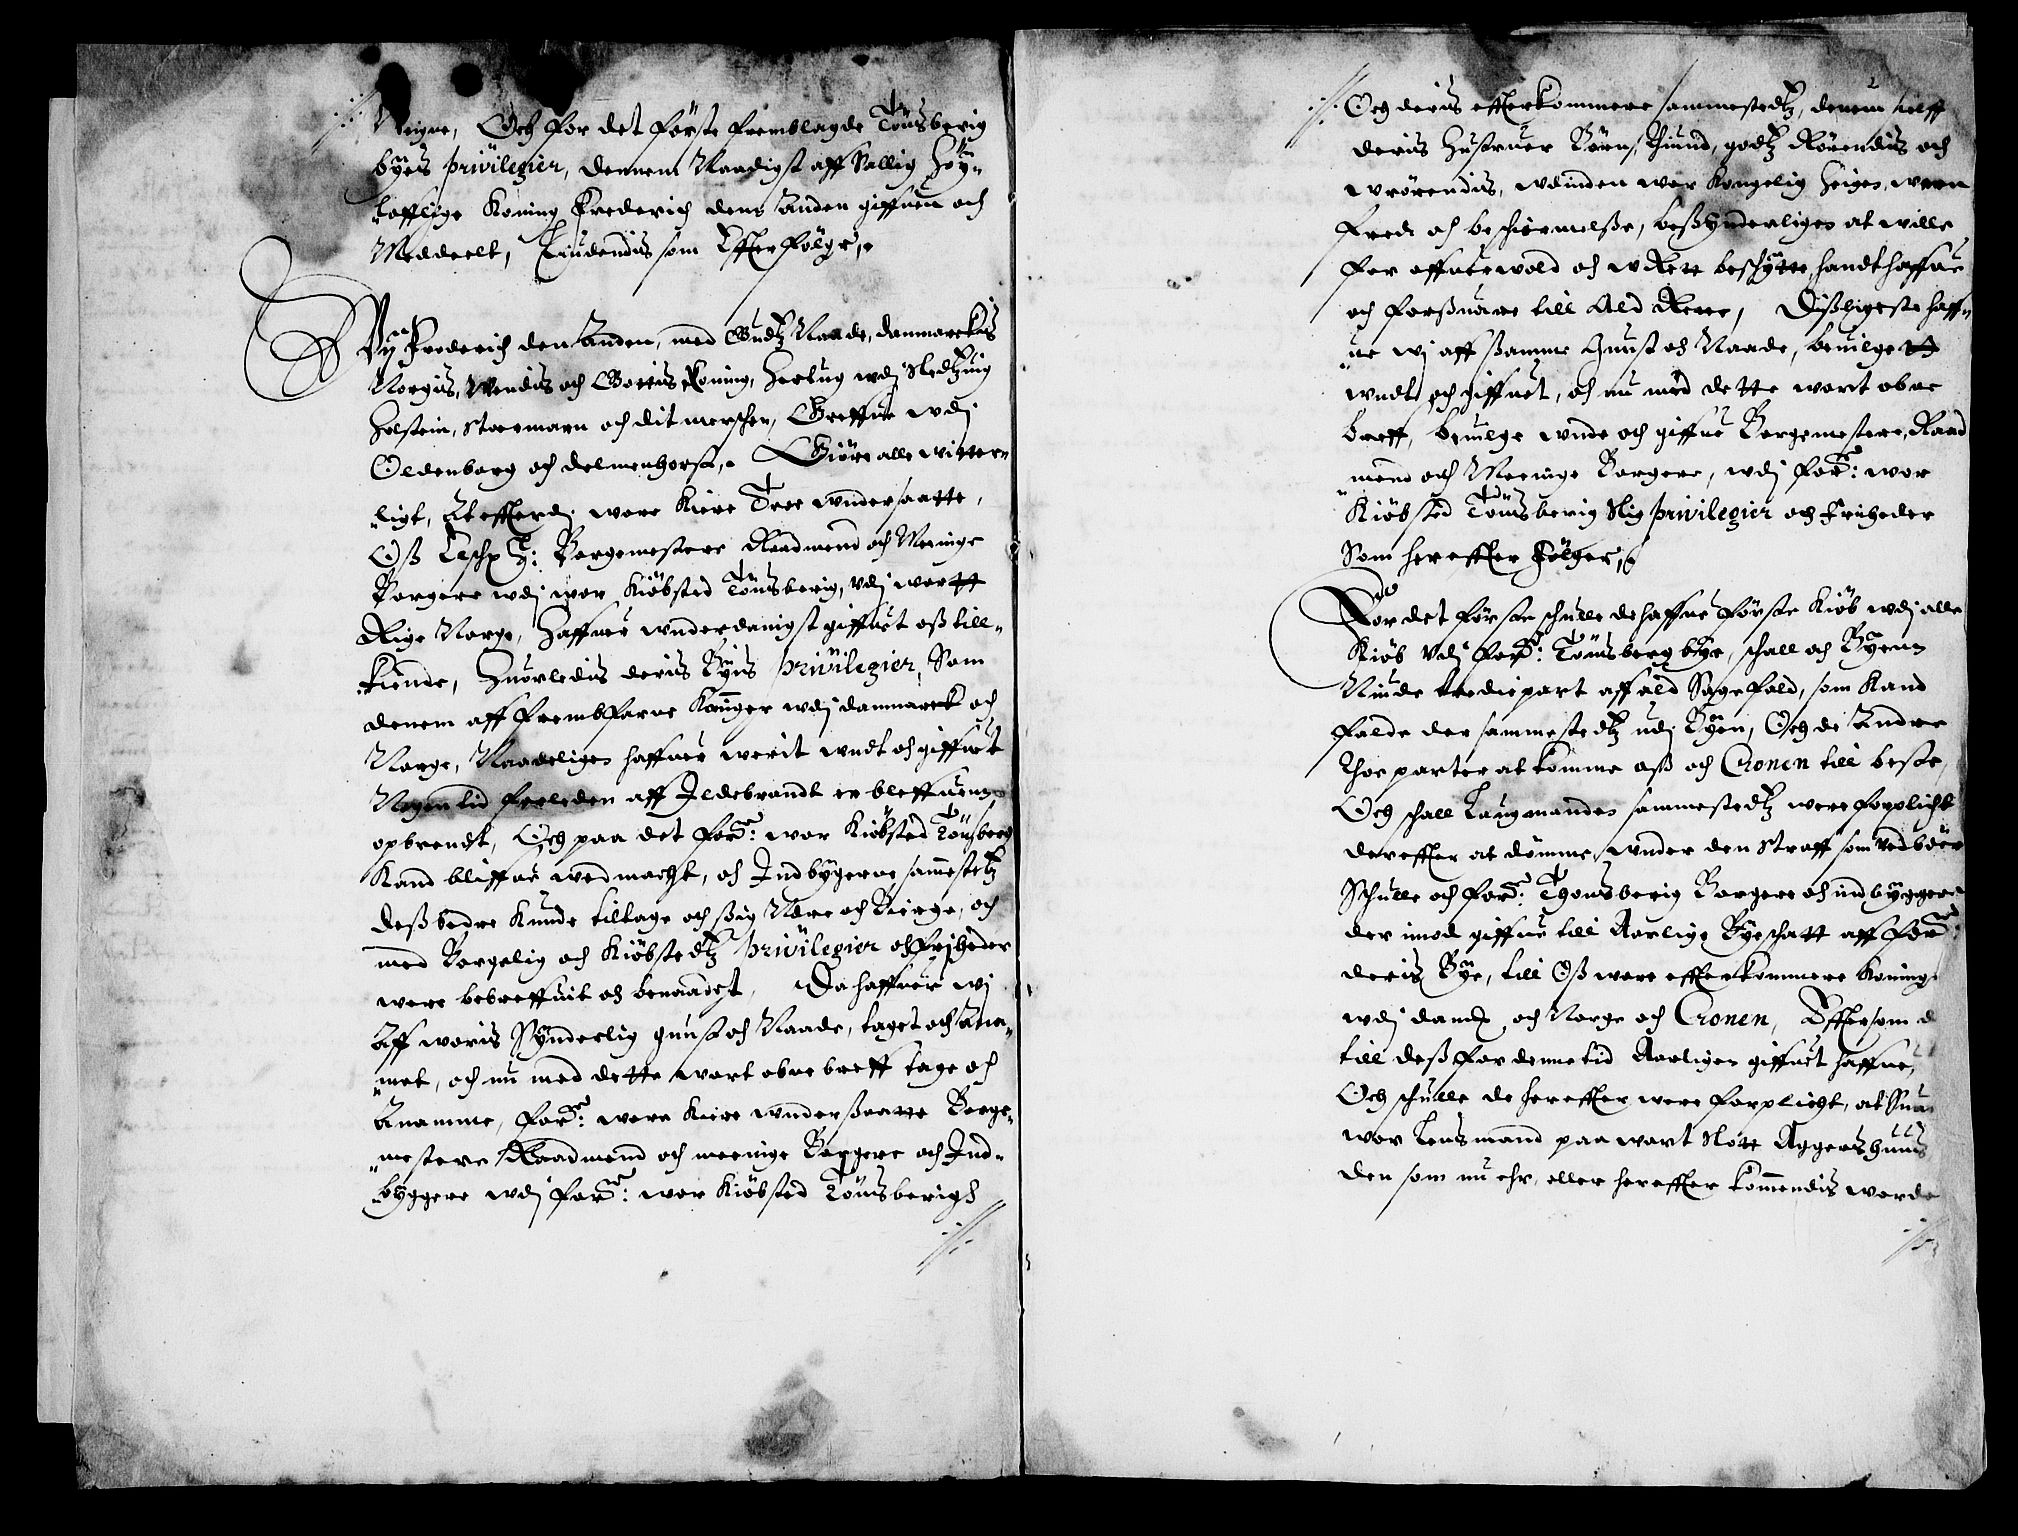 Neigne, Och for det første fremblagde Tönsberig
byes privilegier, dennem Naadigst aff Sallig Höy-
lofflige Koning Frederich den Anden giffuen och
Meddeelt, Liudendis som Effterfölger,
Wy Frederich den Anden, med Gudtz Naade, danmarckis
Norgis, Wendis och Gottis Koning, Hertug wdj Sledtzuig
Holstein, Stormarn och ditmerschen, Greffue wdj
Oldenborg och delmenhorst, Giöre alle witter-
ligt, At effterdj wore Kiere Troe wndersaatte,
Oß Elschl: Borgemestere Raadmend och Meenige
Borgere wdj wor Kiöbsted Tönsberig, vdj wortt
Rige Norge, Haffuer wnderdanigst giffuet oß till-
kiende, Huorledis deris Byis privilegier, Som
denem aff frembfarne Konnger wdj danmarck och
Norge, Naadeligen haffuer werit wndt och giffuet
Nogen tid forleden aff Ildebrandt er bleffuenn
opbrendt, Och paa det ford: wor Kiöbsted Tönsberg
Kand bliffue wed macht, och Indbygerne sammestetz
deß bedre Kunde tiltage och sig Nere och Bierge, och
med Borgelig och Kiöbstedtz privilegier och frjheder
were bebreffuit och benaadet, Da haffuer wj
Aff woris synderlig gunst och Naade, taget och Ana-
met, och nu med dette wort obne breff tage och
Anamme, ford: wore Kiere wndersaatte Borge-
mestere Raadmend och meenige Borgere och Ind-
byggere wdj ford: wor Kiöbsted Tönsberig
Och deris effterkommere sammestedtz, denem sielff
deris Hustruer Börn, Thiund, godtz Rörendis och
wrörendis, wdinden wor Kongelig Heigen, wern
Fred och beschiermelße, beßynderligen at wille
for offuerwold och wRett beschytte, handthaffue
och forßuare till Ald Rette, Dißligeste haff-
ue wj aff samme Gunst och Naade, beuilget
wndt och giffuet, och nu med dette wort obne
breff, beuilge wnde och giffue Borgemestere, Raad
mend och Meenige Borgere, wdj ford: wor
Kiöbsted Tönsberig Slig privilegier och Friheder
Som her effter Fölger,
For det förste schulle de haffue förste Kiöb wdj alle
Kiöb vdj ford: Tönsberg bye, schall och Byenn
Niude tredie part aff ald Sagefald, som Kand
falde der sammestedtz udj Byen, Och de Andre
thoe parter at komme oß och Cronen till beste,
Och schall Laugmanden sammestedtz were forplicht
der effter at dömme, wnder den Straff som vedböer
Schulle och ford: Thonsberig Borgere och indbyggere
der imod giffue till Aarlige Byeschatt aff ford:
deris Bye, till Oß wore effterkommere Koning
wdj danm: och Norge och Cronen, Effter som d
till deß for denne tid Aarligen giffuet haffue,
Och schulle de her effter were forplicht, at suar
wor Lensmand paa wort Slott Aggershuus
den som nu ehr, eller her effter kommendis worde